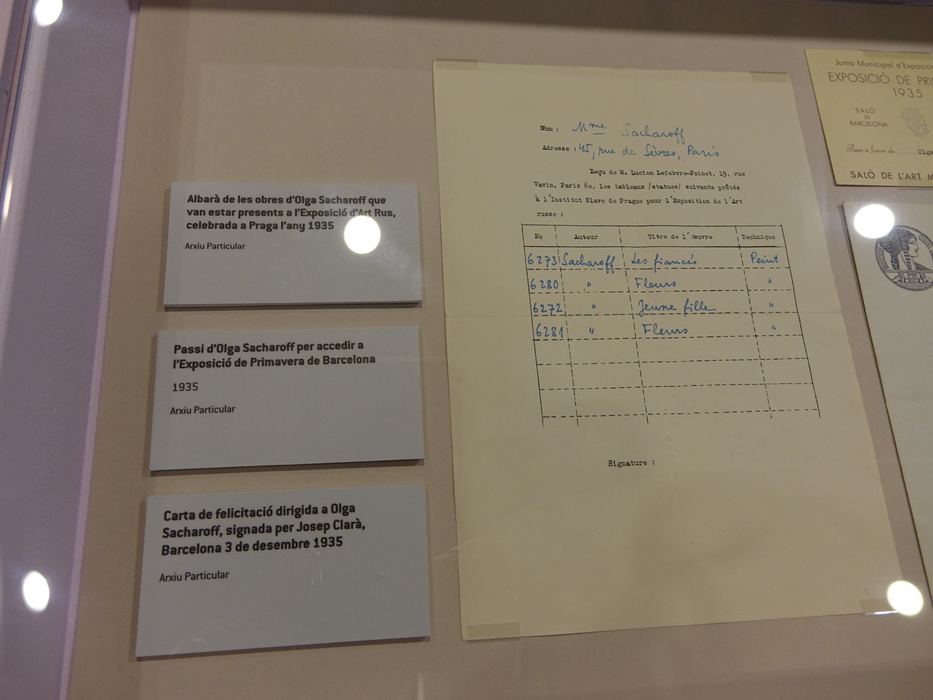 Albarà de les obres d'Olga Sacharoff que
van estar presents a l'Exposició d'Art Rus,
celebrada a Praga l'any 1935
Arxiu Particular
Passi d'Olga Sacharoff per accedir a
l'Exposició de Primavera de Barcelona
1935
Arxiu Particular
Carta de felicitació dirigida a Olga
Sacharoff, signada per Josep Clarà,
Barcelona 3 de desembre 1935
Arxiu Particular
Nom : Mme Sacharoff
Adresse : 45, rue de Sèvres, Paris
Reçu de M. Lucien Lefebvre-Foinet, 19, rue
Vavin, Paris 6o, les tableaux /statues/ suivants prêtés
à l'Institut Slave de Prague pour l'Exposition de l'Art
russe :
No Auteur Titre de l'œuvre Technique
6273 Sacharoff Les fiancés Peint
6280 " Fleurs "
6272 " Jeune fille "
6281 " Fleurs "
Signature :
Junta Municipal d'Exposicio
EXPOSICIÓ DE PRI
1935
SALÓ
DE
BARCELONA
SALÓ DE L'ART M